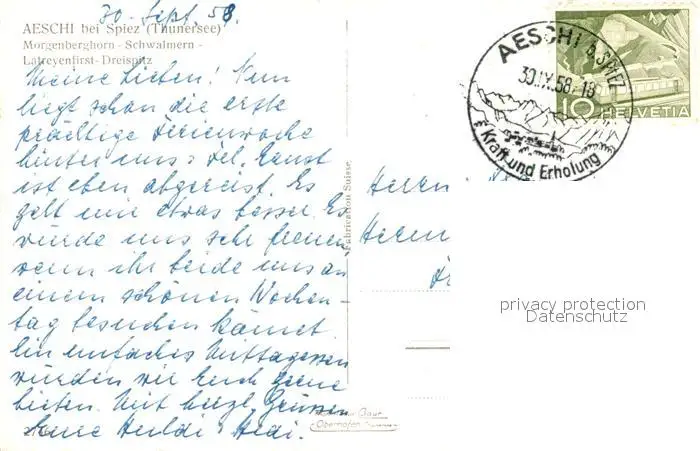 30. Sept. 58.
AESCHI bei Spiez (Thunersee)
Morgenberghorn - Schwalmern -
Latreyenfirst - Dreispitz
Meine Lieben! Nun
liegt schon die erste
prächtige Ferienwoche
hinter uns
ist eben abgereist. Es
geht mir etwas besser. Es
würde uns sehr freuen
wenn ihr beide uns an
einem schönen Wochen-
tag besuchen kämet
Ein einfaches Mittagessen
würden wir Euch gerne
bieten. Mit herzl. Grüssen
Heidi.
Fabrication Suisse.
AESCHI b. SPIEZ
30.IX.58.-18
Kraft und Erholung
10 HELVETIA
Herrn
Herm
privacy protection
Datenschutz
Gaur
Oberhofen